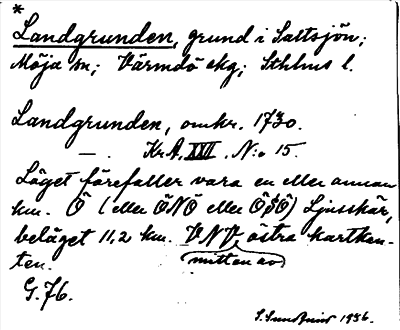 *
Landgrunden, grund i Saltsjön;
Möja sn; Värmdö skg; Sthlms l.
Landgrunden, omkr. 1730.
— . Kr.A. XXII. N:o 15.
Läget förefaller vara en eller annan
km. Ö (eller ÖNÖ eller ÖSÖ) Ljusskär,
beläget 11,2 km. VNV östra kartkan-
mitten av
ten.
G. 76.
1936.